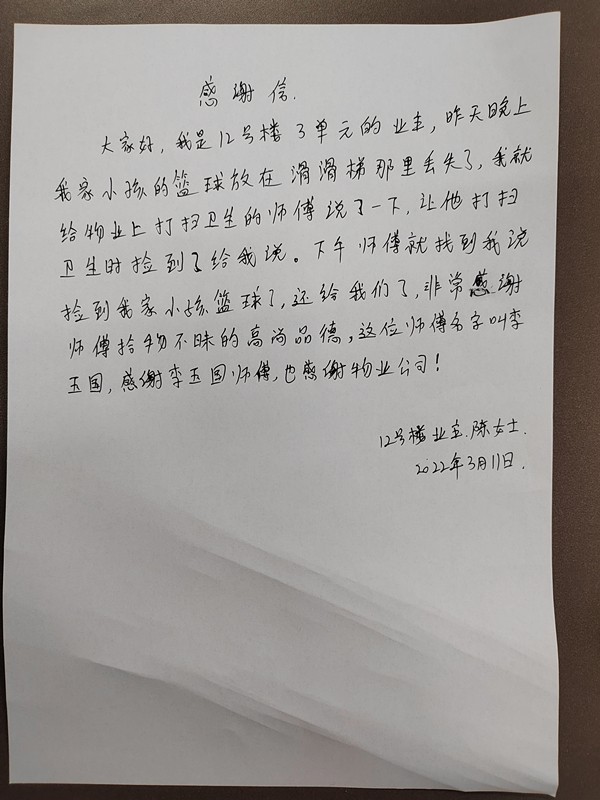 感谢信.
大家好，我是12号楼3单元的业主，昨天晚上
我家小孩的篮球放在滑滑梯那里丢失了，我就
给物业上打扫卫生的师傅说了一下，让他打扫
卫生时捡到了给我说。下午师傅就找到我说
捡到我家小孩篮球了，还给我们了，非常感谢
师傅拾物不昧的高尚品德，这位师傅名字叫李
玉国，感谢李玉国师傅，也感谢物业公司！
12号楼业主.陈女士.
2022年3月11日.